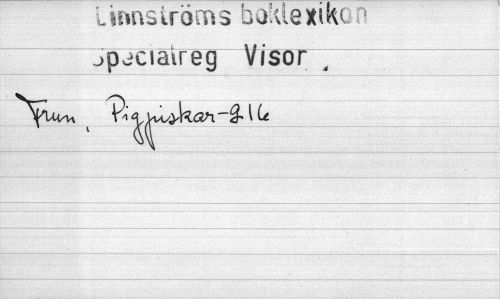 Linnströms boklexikon
Specialreg Visor
Frun, Pigpiskar-